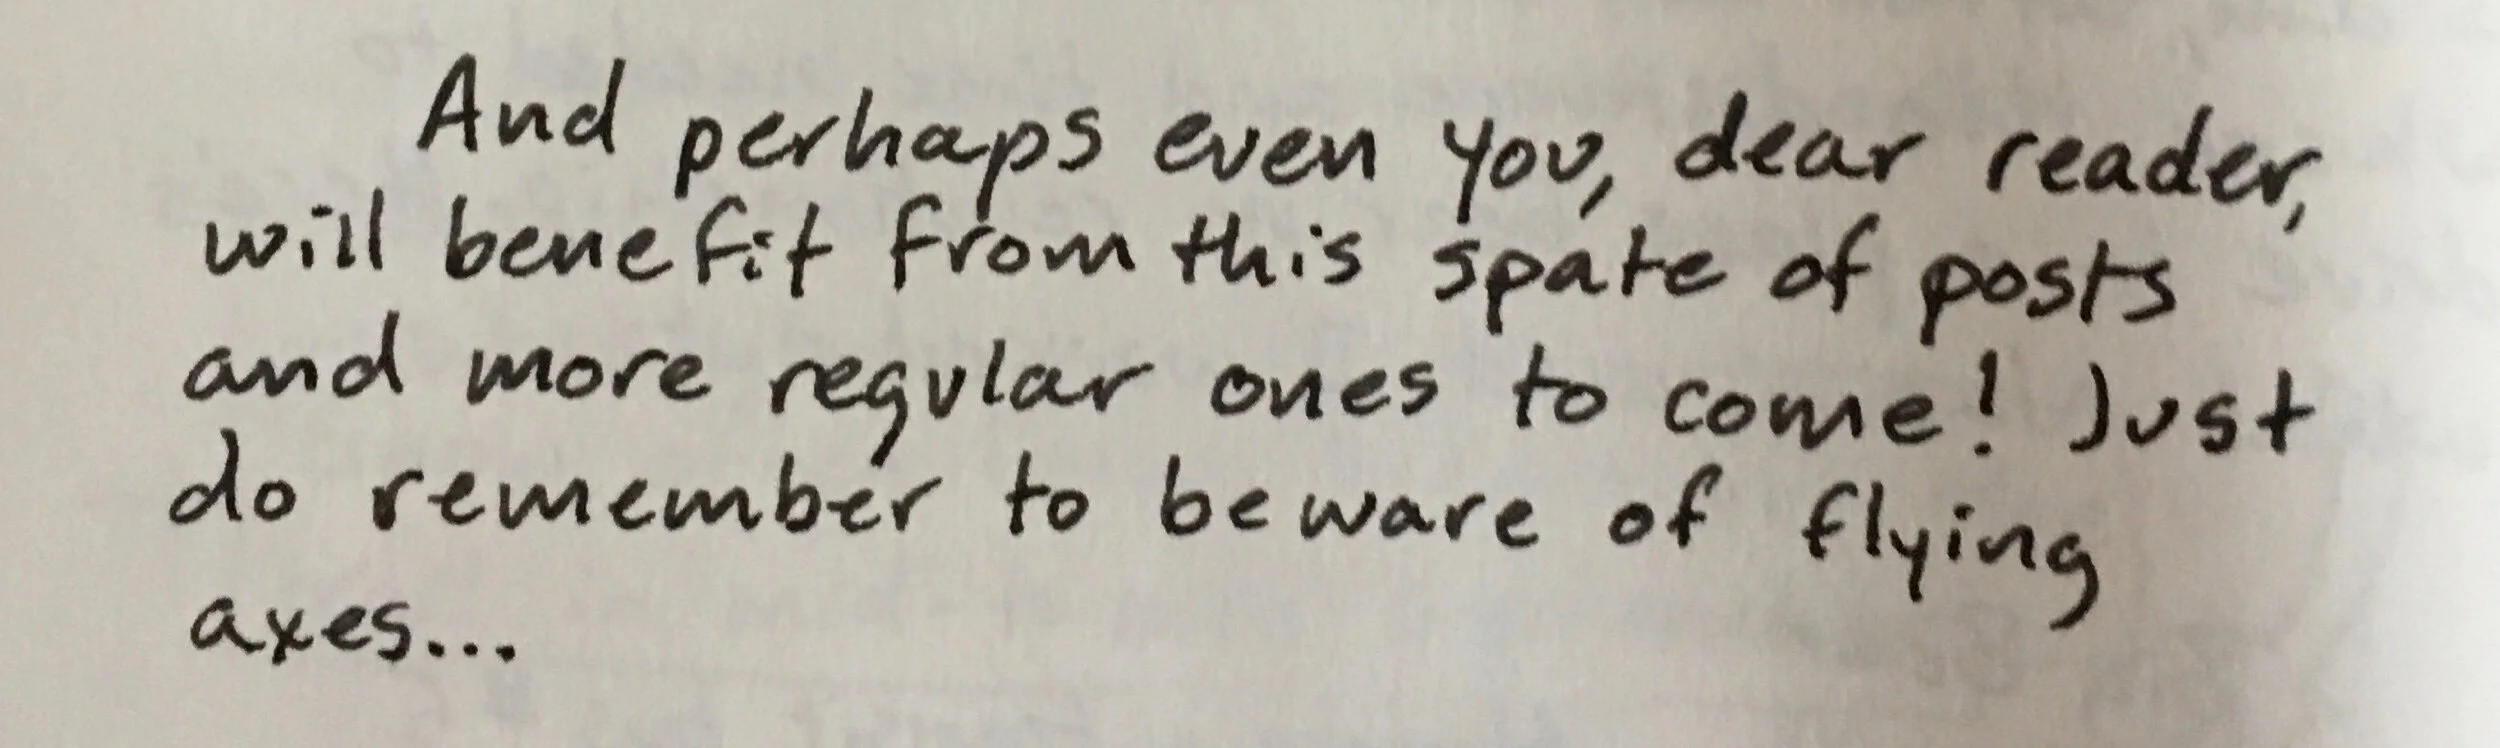 And perhaps even you, dear reader,
will benefit from this spate of posts
and more regular ones to come! Just
do remember to beware of flying
axes...